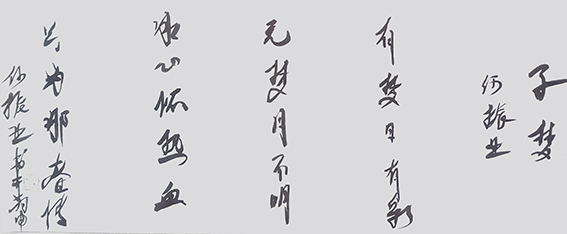 子梦
何振业
有梦日有影
无梦月不明
冰心怀热血
只为那春情
何振业书于